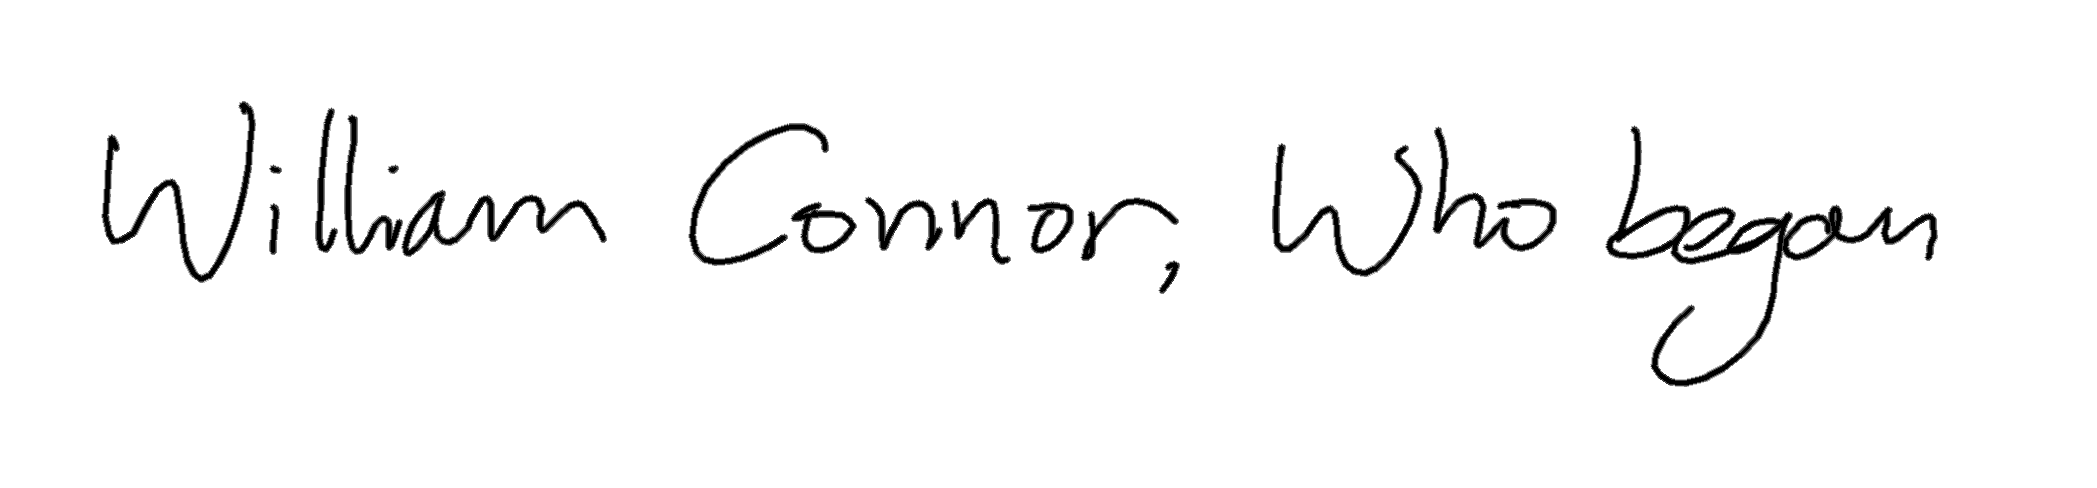 William Connor, who began